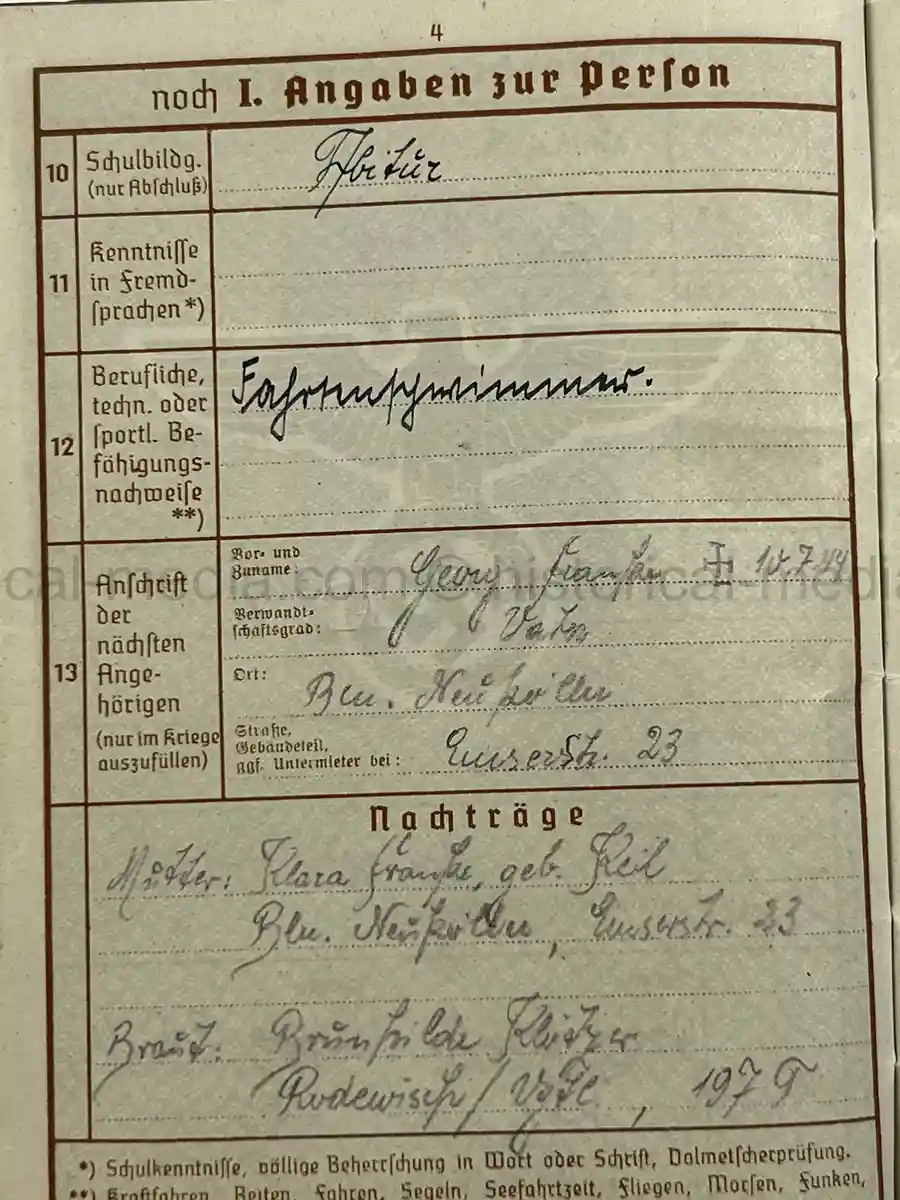 4
noch I. Angaben zur Person
10 Schulbildg. (nur Abschluß)
Abitur
11 Kenntnisse in Fremd-sprachen *)
12 Berufliche, techn. oder sportl. Be-fähigungs-nachweise **)
Fahrtenschwimmer.
13 Anschrift der nächsten Ange-hörigen (nur im Kriege auszufüllen)
Vor- und Zuname: Georg Franke 10.7.44
Verwandt-schaftsgrad: Vater
Ort: Bln. Neukölln
Straße, Gebäudeteil, ggf. Untermieter bei: Emserstr. 23
Nachträge
Mutter: Klara Franke, geb. Keil
Bln. Neukölln, Emserstr. 23
Braut: Brunhilde
Rodewisch / Vgtl, 197
*) Schulkenntnisse, völlige Beherrschung in Wort oder Schrift, Dolmetscherprüfung.
**) Kraftfahren, Reiten, Fahren, Segeln, Seefahrtzeit, Fliegen, Morsen, Funken,